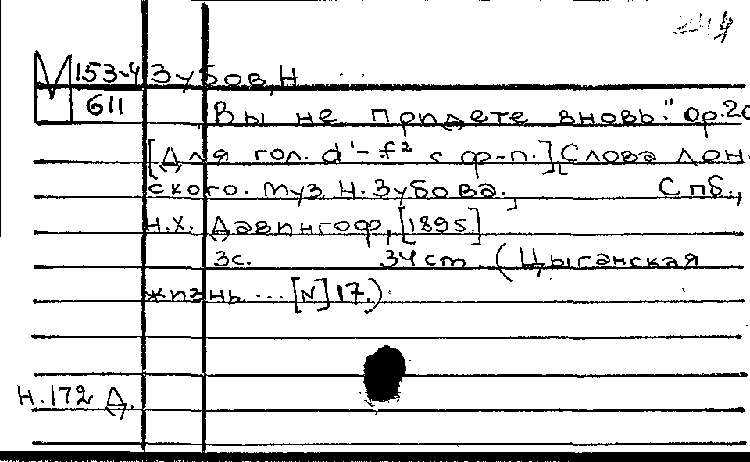 М 153-4 Зубов, Н
611 Вы не придете вновь." Ор.20
[Для гол. d¹-f² с ф-п.] Слова Лон-
ского. Муз Н. Зубова. Спб.,
Н.Х. Давингоф, [1895]
3с. 34 cm (Цыганская
жизнь... [N] 17.)
Н.172 Д.